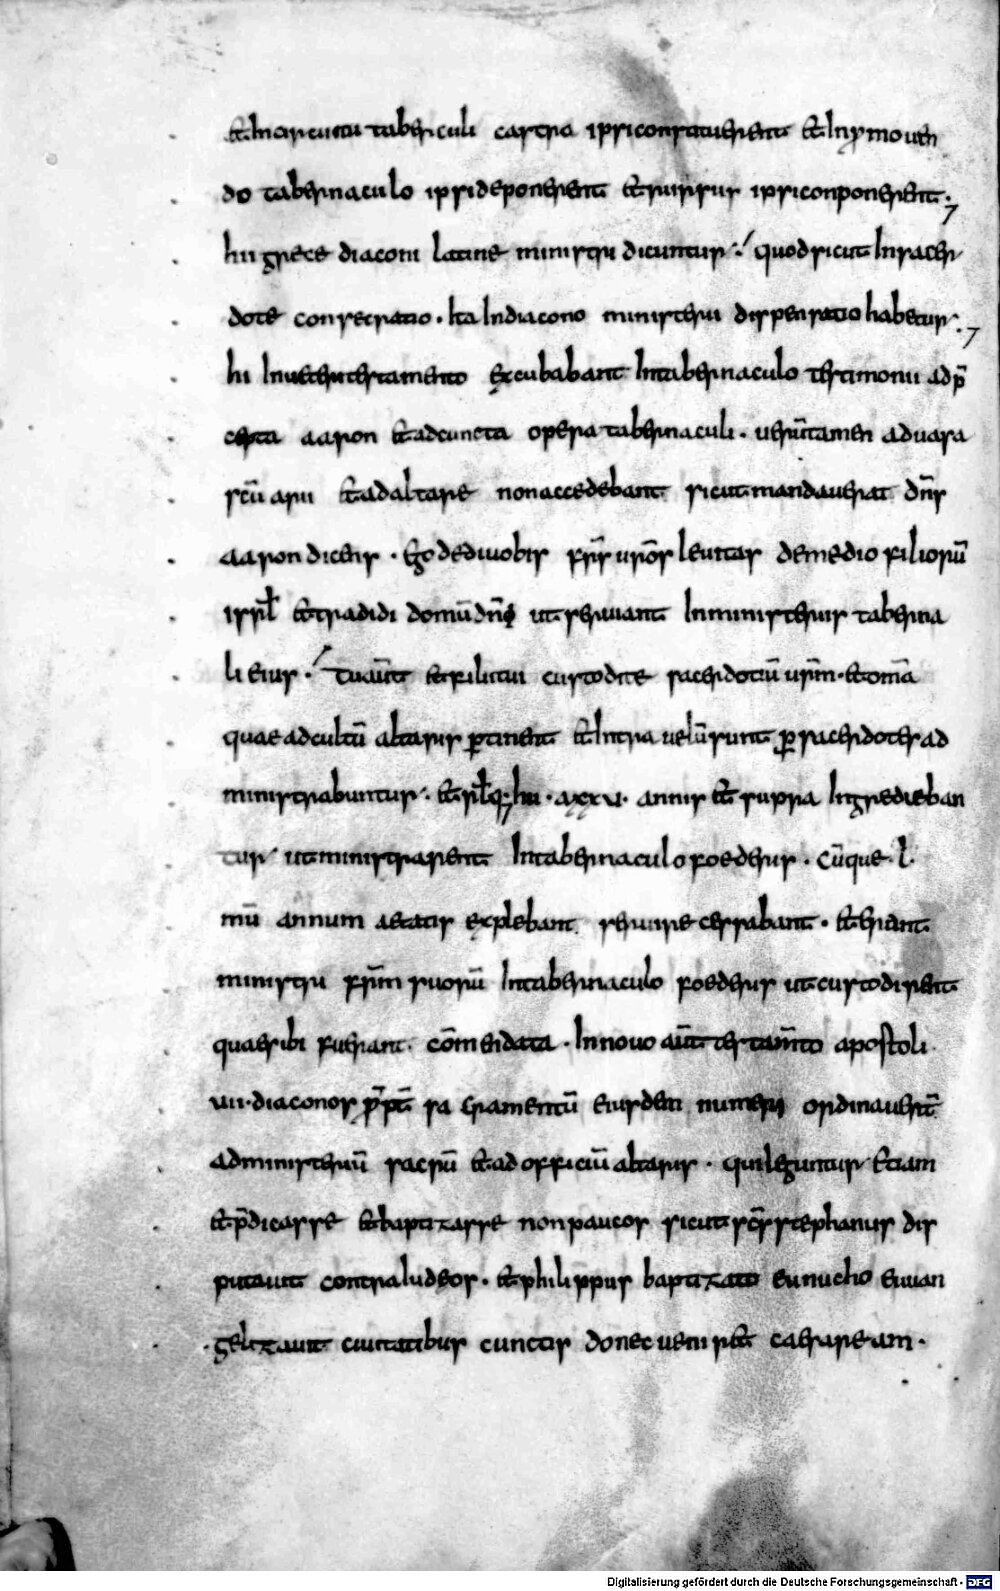 et in circuitu tabernculi castra ipsi constituerent et in promouen
do tabernaculo ipsi deponerent et rursur ipsi conponerent.
hii grece diaconi latine ministri dicuntur. quod sicut in sacer
dote consecratio. ita in diacono ministerii dispensatio habetur.
hii in ueteri testamento excubabant in tabernaculo testimonii ad p̄
cepta aaron et ad cuncta opera tabernaculi. uerūtamen ad uasa
scūarii et ad altare non accedebant sicut mandauerat dn̄s
aaron dicens. ego dedi uobis fr̄s ur̄os leuitas de medio filiorū
isrl̄ et tradidi donū dn̄o ut seruiant in ministeriis tabernа
li eius. tu aūt et filii tui custodite sacerdotiū ur̄m. et om̄a
quae ad cultū altaris ptinent et intra uelū sunt p sacerdotes ad
ministrabuntur. et isrl̄ hii. a xxv. annis et supra ingredieban
tur ut ministrarent in tabernaculo foederis. cūque. l.
mū annum aetatis explebant seruire cessabant. et erant
ministri fr̄m suorū in tabernaculo foederis ut custodirent
quae sibi fuerant com̄endata. In nouo aūt testam̄to apostoli
uii. diaconos ppt sacramentū eiusdem numeri ordinauert̄
ad ministeriū sacrū et ad officiū altaris. qui leguntur etiam
et p̄dicasse et baptizasse non paucos sicut sc̄s stephanus dis
putauit contra iudeos. et philippus baptizato eunucho euuan
gelizauit ciuitatibus cunctis donec uenisset caesaream.
Digitalisierung gefördert durch die Deutsche Forschungsgemeinschaft - DFG